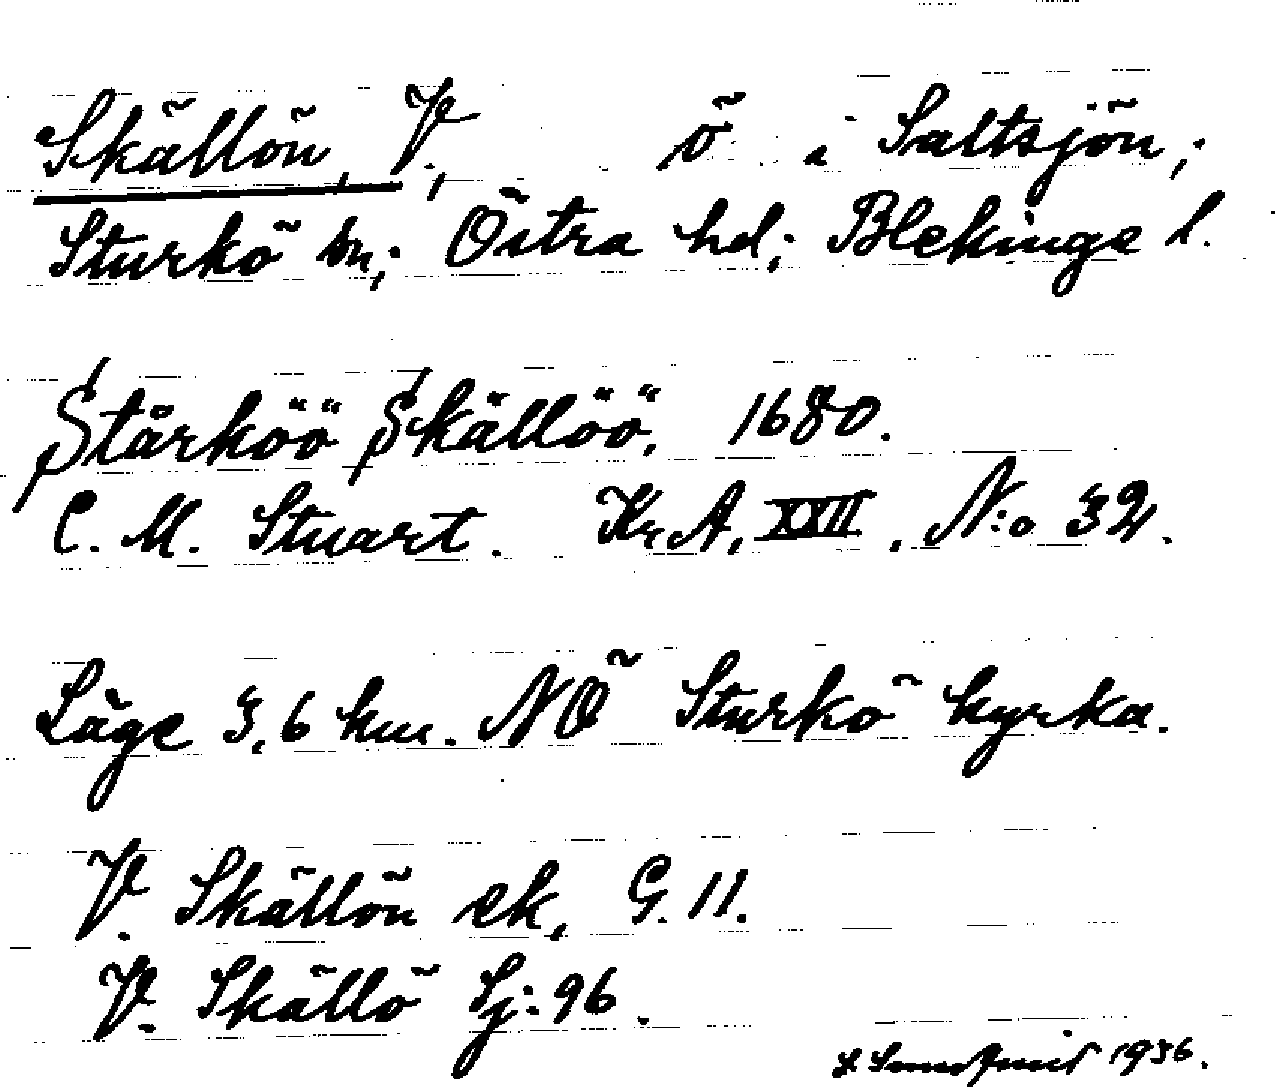 Skällön, V., ö i Saltsjön;
Sturkö sn; Östra hd; Blekinge l.
Stärköö Skällöö, 1680.
C. M. Stuart. Kr. A. XXII, N:o 32.
Läge 3,6 km. NÖ Sturkö kyrka.
V. Skällön ek, G. 11.
V. Skällö Sj: 96.
1936.